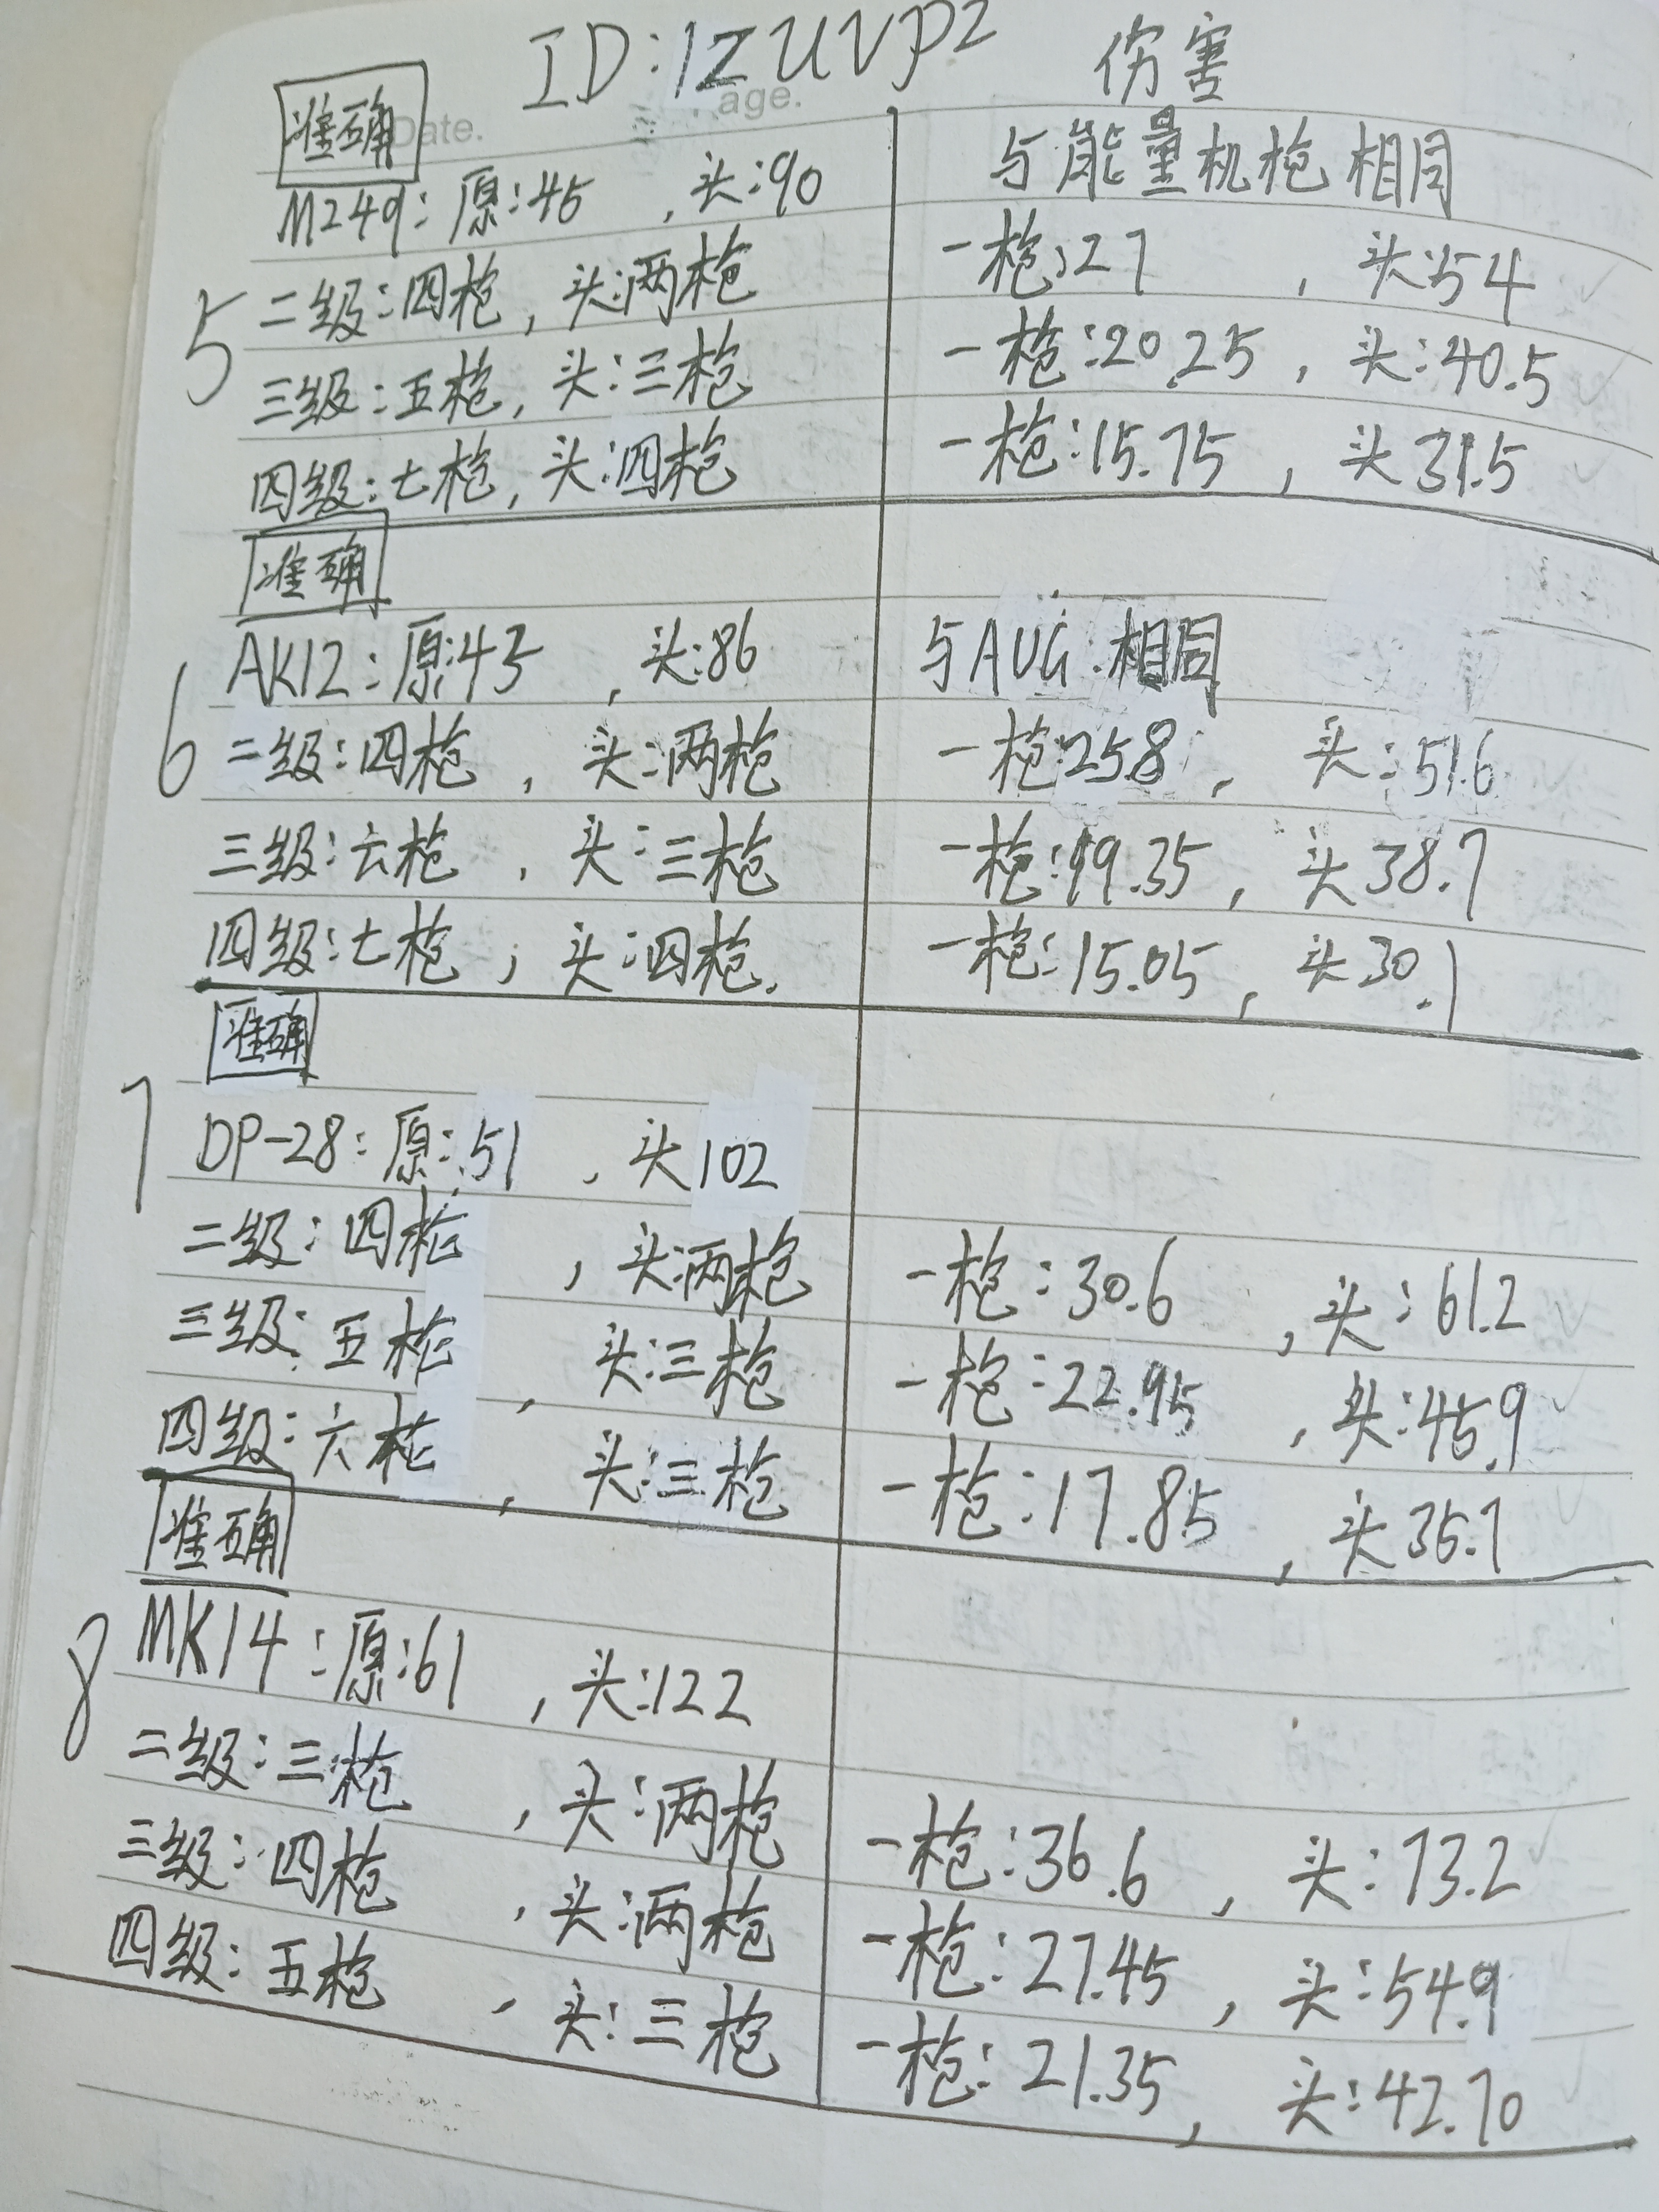 ID:1ZUVP2 伤害
age.
Date.
准确
M249:原:45 ,头:90 与能量机枪相同
5 二级:四枪,头:两枪 一枪:27 ,头:54
三级:五枪,头:三枪 一枪:20.25,头:40.5
四级:七枪,头:四枪 一枪:15.75,头31.5
准确
6 AK12:原:43 ,头:86 与AUG:相同
二级:四枪 ,头:两枪 一枪:25.8,头:51.6
三级:六枪 ,头:三枪 一枪:19.35,头38.7
四级:七枪 ,头:四枪. 一枪:15.05,头30.1
准确
7 DP-28:原:51 ,头102
二级:四枪 ,头:两枪 一枪:30.6 ,头:61.2
三级:五枪 ,头:三枪 一枪:22.95 ,头:45.9
四级:六枪 ,头:三枪 一枪:17.85 ,头35.7
准确
8 MK14:原:61 ,头:122
二级:三枪 ,头:两枪 一枪:36.6 ,头:73.2
三级:四枪 ,头:两枪 一枪:27.45 ,头:54.9
四级:五枪 ,头:三枪 一枪:21.35 ,头:42.70